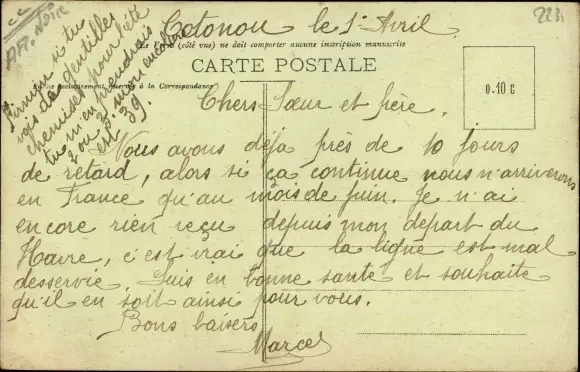 AFR. NOIRE
223
Cotonou le 1er Avril
Le Verso (côté vue) ne doit comporter aucune inscription manuscrite
CARTE POSTALE
exclusivement réservée à la Correspondance
0.10 c
Firmin si tu
vois de gentilles
chemises pour l'été
tu m'en prendrais
2 ou 3. mon encolure
est 39.
Chers Sœur et frère.
Nous avons déjà près de 10 jours
de retard, alors si ça continue nous n'arriverons
en France qu'au mois de juin. Je n'ai
encore rien reçu depuis mon départ du
Havre, c'est vrai que la ligne est mal
desservie. Suis en bonne santé et souhaite
qu'il en soit ainsi pour vous.
Bons baisers
Marcel